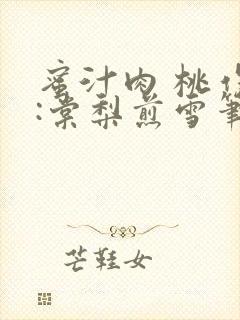 蜜汁肉桃
:棠梨煎雪
芒鞋女